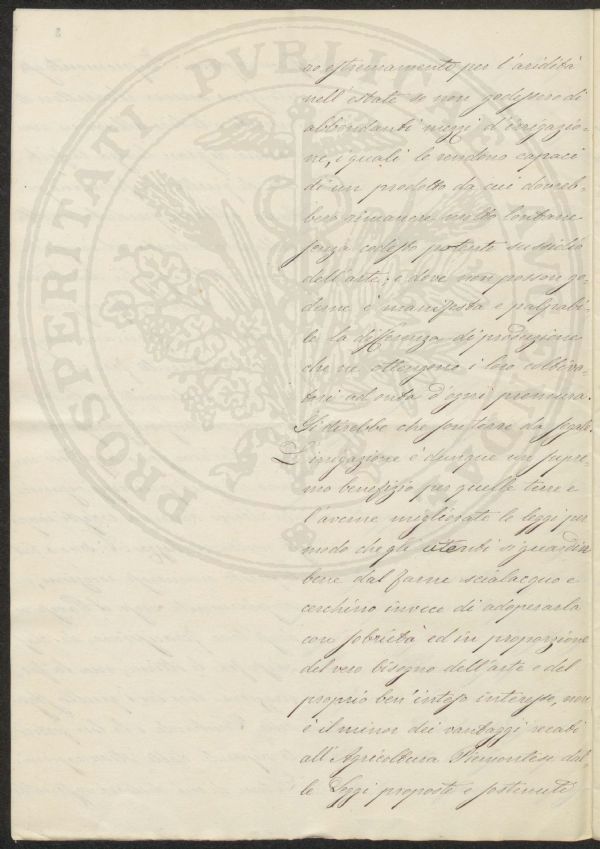 ro estremamente per l'aridità
nell'estate se non godessero di
abbondanti mezzi d'irrigazio-
ne, i quali le rendono capaci
di un prodotto da cui dovreb-
bero rimanere molto lontane
senza codesto potente sussidio
dell'arte; e dove non posson go-
derne è manifesta e palpabi-
le la differenza di produzione
che ne ottengono i loro coltiva-
tori ad onta d'ogni premura.
Si direbbe che son terre da segale.
L'irrigazione è dunque un supre-
mo benefizio per quelle terre e
l'averne migliorate le leggi per
modo che gli utenti si guardin
bene dal farne scialacquo e
cerchino invece di adoperarla
con sobrietà ed in proporzione
del vero bisogno dell'arte e del
proprio ben'inteso interesse, non
è il minor dei vantaggi recati
all'Agricoltura Piemontese dal
le Leggi proposte e sostenute
PROSPERITATI PVBLICAE AVGENDAE